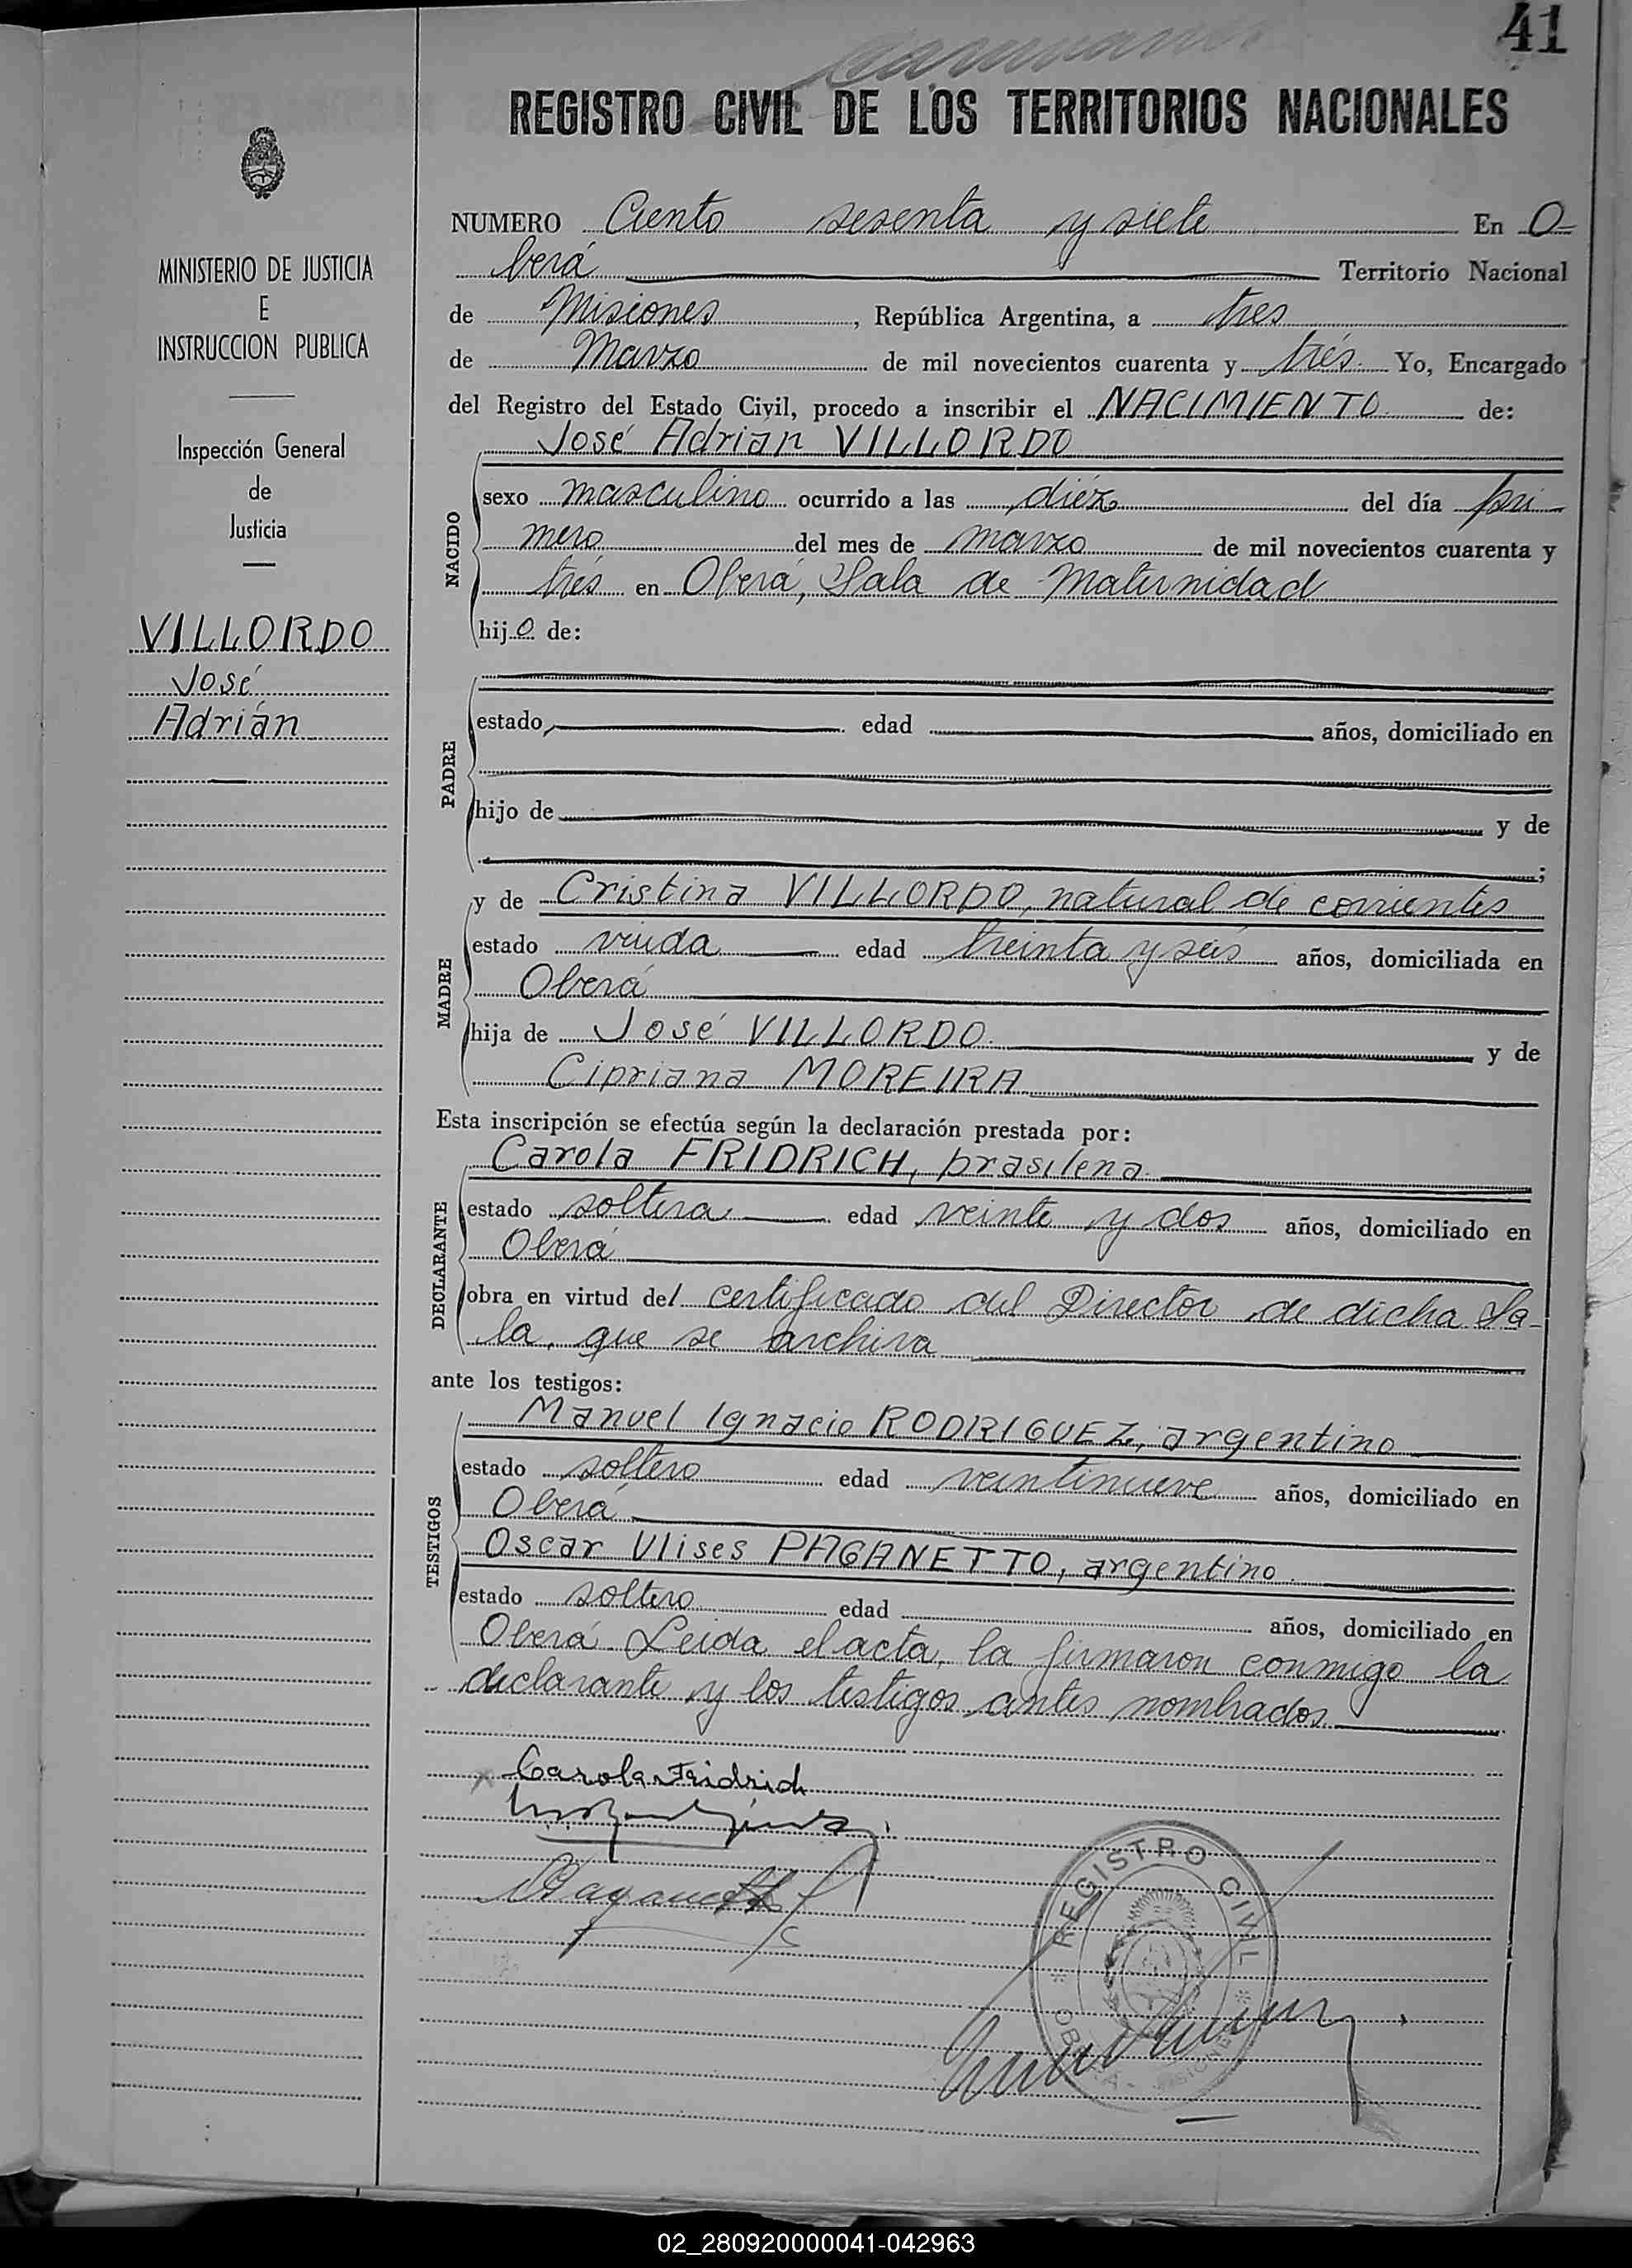 41
REGISTRO CIVIL DE LOS TERRITORIOS NACIONALES
MINISTERIO DE JUSTICIA
E
INSTRUCCION PUBLICA
Inspección General
de
Justicia
VILLORDO
José
Adrián
NUMERO Ciento sesenta y siete En O-
berá Territorio Nacional
de Misiones, República Argentina, a tres
de Marzo de mil novecientos cuarenta y trés Yo, Encargado
del Registro del Estado Civil, procedo a inscribir el NACIMIENTO de:
José Adrián VILLORDO
NACIDO
sexo masculino ocurrido a las diéz del día pri-
mero del mes de marzo de mil novecientos cuarenta y
trés en Oberá, Sala de Maternidad
hijo de:
PADRE
estado, edad años, domiciliado en
hijo de y de
;
MADRE
y de Cristina VILLORDO, natural de corrientes
estado viuda edad treinta y seis años, domiciliada en
Oberá
hija de José VILLORDO y de
Cipriana MOREIRA
Esta inscripción se efectúa según la declaración prestada por:
DECLARANTE
Carola FRIDRICH, brasilena
estado soltera edad veinte y dos años, domiciliado en
Oberá
obra en virtud del certificado del Director de dicha Sa-
la, que se archiva
ante los testigos:
TESTIGOS
Manuel Ignacio RODRIGUEZ, argentino
estado soltero edad veintinueve años, domiciliado en
Oberá
Oscar Ulises PAGANETTO, argentino
estado soltero edad años, domiciliado en
Oberá. Leida el acta, la firmaron conmigo la
declarante y los testigos antes nombrados
Carola Fridrich
REGISTRO CIVIL
02_280920000041-042963